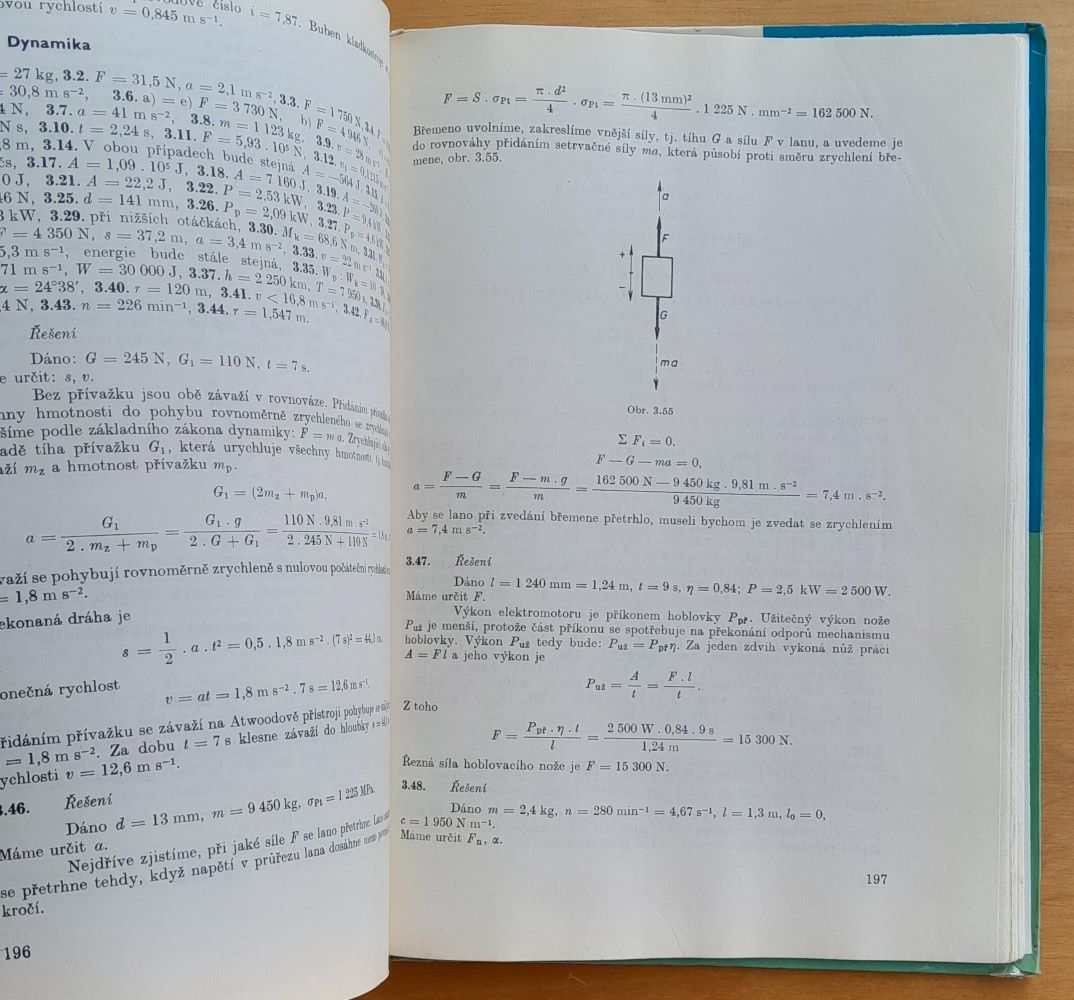 číslo i = 7,87. Buben
rychlostí v = 0,845 m s⁻¹.
Dynamika
= 27 kg, 3.2. F = 31,5 N, a = 2,1 m s⁻², 3.3. F = 1 750 N, 3.4.
= 30,8 m s⁻², 3.6. a) = e) F = 3 730 N, b) F = 4 946 N,
N, 3.7. a = 41 m s⁻², 3.8. m = 1 123 kg, 3.9. v = 28 m s⁻¹
N s, 3.10. t = 2,24 s, 3.11. F = 5,93 . 10⁵ N, 3.12.
8 m, 3.14. V obou případech bude stejná A = —564 J, 3.15.
3.17. A = 1,09 . 10⁵ J, 3.18. A = 7 160 J, 3.19.
0 J, 3.21. A = 22,2 J, 3.22. P = 2,53 kW, 3.23. P = 9,4 kW
46 N, 3.25. d = 141 mm, 3.26. Pₚ = 2,09 kW, 3.27.
3 kW, 3.29. při nižších otáčkách, 3.30. Mₖ = 68,6 N m, 3.31.
F = 4 350 N, s = 37,2 m, a = 3,4 m s⁻², 3.33. v = 22 m s⁻¹
5,3 m s⁻¹, energie bude stále stejná, 3.35. Wₚ : Wₖ = 10 :
71 m s⁻¹, W = 30 000 J, 3.37. h = 2 250 km, T = 7 950 s,
α = 24°38′, 3.40. r = 120 m, 3.41. v < 16,8 m s⁻¹, 3.42.
,4 N, 3.43. n = 226 min⁻¹, 3.44. r = 1,547 m.
Řešení
Dáno: G = 245 N, G₁ = 110 N, t = 7 s.
e určit: s, v.
Bez přívažku jsou obě závaží v rovnováze. Přidáním
hny hmotnosti do pohybu rovnoměrně zrychleného se
šíme podle základního zákona dynamiky: F = m a.
adě tíha přívažku G₁, která urychluje všechny hmotnosti, tj.
aží m_z a hmotnost přívažku mₚ.
G₁ = (2m_z + mₚ)a,
a = G₁ / (2 . m_z + mₚ) = G₁ . g / (2 . G + G₁) = 110 N . 9,81 m . s⁻² / (2 . 245 N + 110 N)
važí se pohybují rovnoměrně zrychleně s nulovou počáteční rychlostí
= 1,8 m s⁻².
ekonaná dráha je
s = 1/2 . a . t² = 0,5 . 1,8 m s⁻² . (7 s)² = 44,1 m.
onečná rychlost
v = at = 1,8 m s⁻² . 7 s = 12,6 m s⁻¹.
řidáním přívažku se závaží na Atwoodově přístroji pohybuje se
= 1,8 m s⁻². Za dobu t = 7 s klesne závaží do hloubky
ychlosti v = 12,6 m s⁻¹.
3.46. Řešení
Dáno d = 13 mm, m = 9 450 kg, σ_Pt = 1 225 MPa.
Máme určit a.
Nejdříve zjistíme, při jaké síle F se lano přetrhne.
se přetrhne tehdy, když napětí v průřezu lana dosáhne meze
kročí.
196
F = S . σ_Pt = π . d² / 4 . σ_Pt = π . (13 mm)² / 4 . 1 225 N . mm⁻² = 162 500 N.
Břemeno uvolníme, zakreslíme vnější síly, tj. tíhu G a sílu F v lanu, a uvedeme je
do rovnováhy přidáním setrvačné síly ma, která působí proti směru zrychlení bře-
mene, obr. 3.55.
a
F
+
–
G
ma
Obr. 3.55
Σ Fᵢ = 0,
F — G — ma = 0,
a = (F — G) / m = (F — m . g) / m = (162 500 N — 9 450 kg . 9,81 m . s⁻²) / 9 450 kg = 7,4 m . s⁻².
Aby se lano při zvedání břemene přetrhlo, museli bychom je zvedat se zrychlením
a = 7,4 m s⁻².
3.47. Řešení
Dáno l = 1 240 mm = 1,24 m, t = 9 s, η = 0,84; P = 2,5 kW = 2 500 W.
Máme určit F.
Výkon elektromotoru je příkonem hoblovky P_př. Užitečný výkon nože
P_už je menší, protože část příkonu se spotřebuje na překonání odporů mechanismu
hoblovky. Výkon P_už tedy bude: P_už = P_př η. Za jeden zdvih vykoná nůž práci
A = F l a jeho výkon je
P_už = A / t = F . l / t .
Z toho
F = P_př . η . t / l = 2 500 W . 0,84 . 9 s / 1,24 m = 15 300 N.
Řezná síla hoblovacího nože je F = 15 300 N.
3.48. Řešení
Dáno m = 2,4 kg, n = 280 min⁻¹ = 4,67 s⁻¹, l = 1,3 m, l₀ = 0,
c = 1 950 N m⁻¹.
Máme určit Fₙ, α.
197